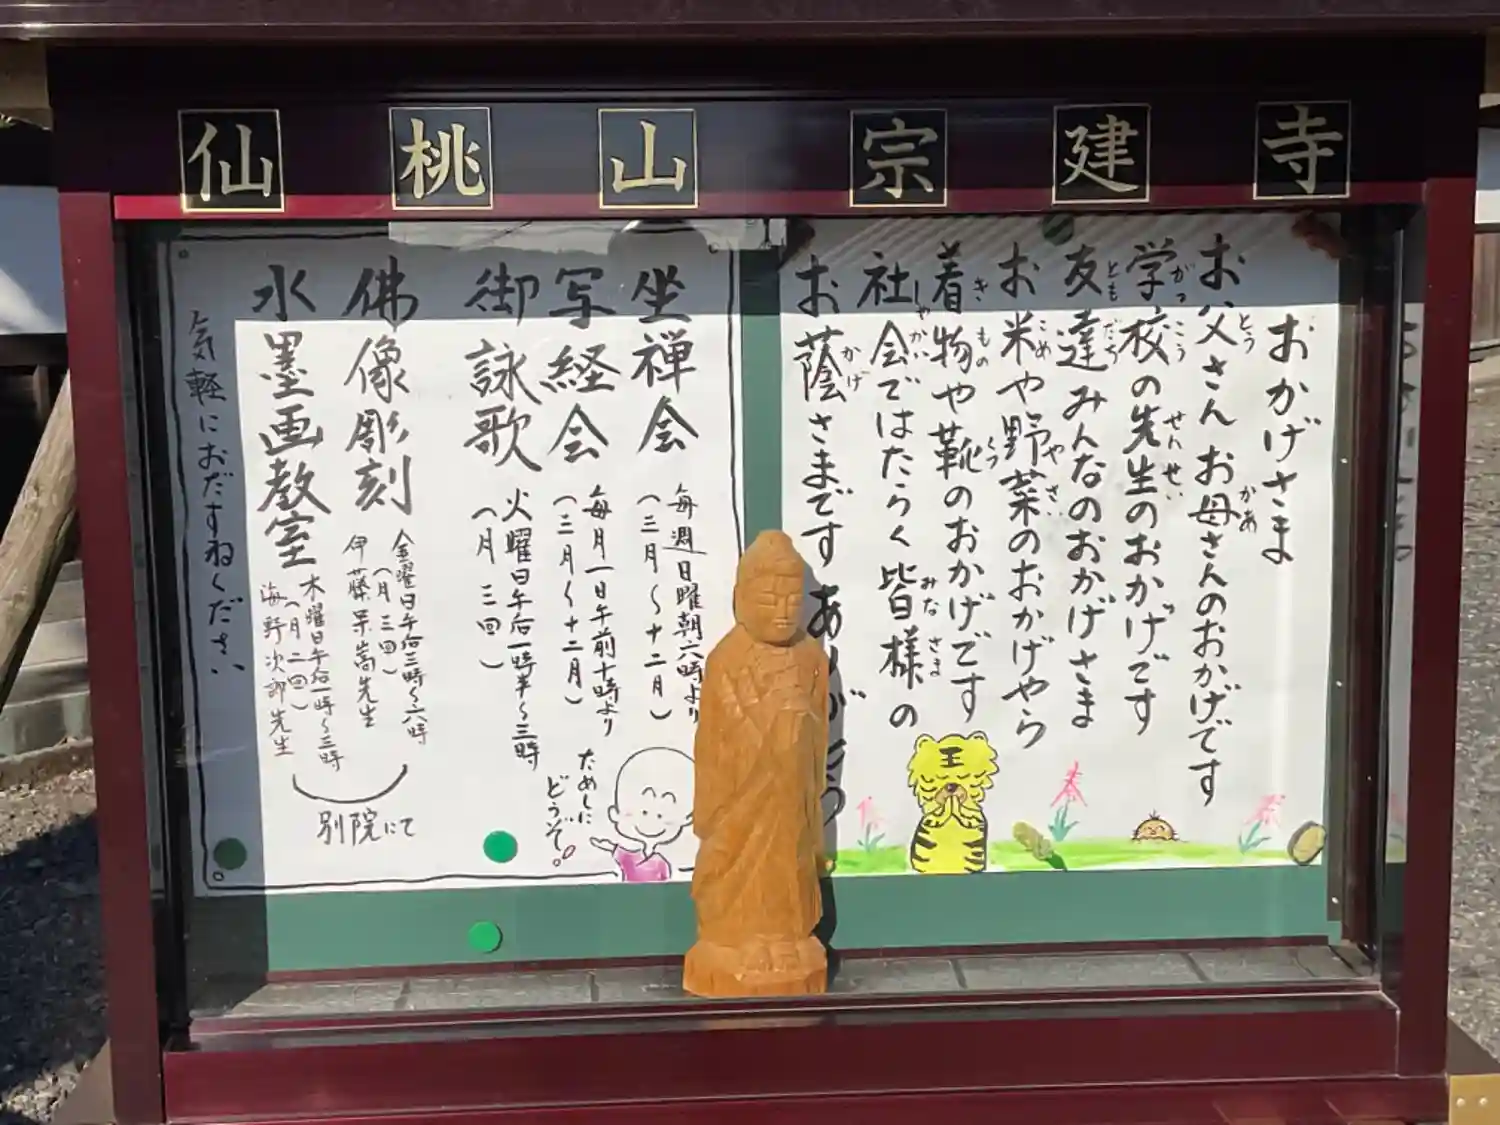 仙桃山 宗建寺
おかげさま
お父さん お母さんのおかげです
学校の先生のおかげです
友達みんなのおかげさま
お米や野菜のおかげやら
着物や靴のおかげです
社会ではたらく皆様の
お蔭さまです あり
坐禅会 毎週日曜朝六時より
(三月〜十二月)
写経会 毎月一日午前十時より
(三月〜十二月)
御詠歌 火曜日午后一時半〜三時
(月二回)
ためしに
どうぞ。
佛像彫刻 金曜日午后三時〜六時
(月三回)
先生
水墨画教室 木曜日午后一時〜三時
(月二回)
海野次郎先生
別院にて
気軽におたずねください
王